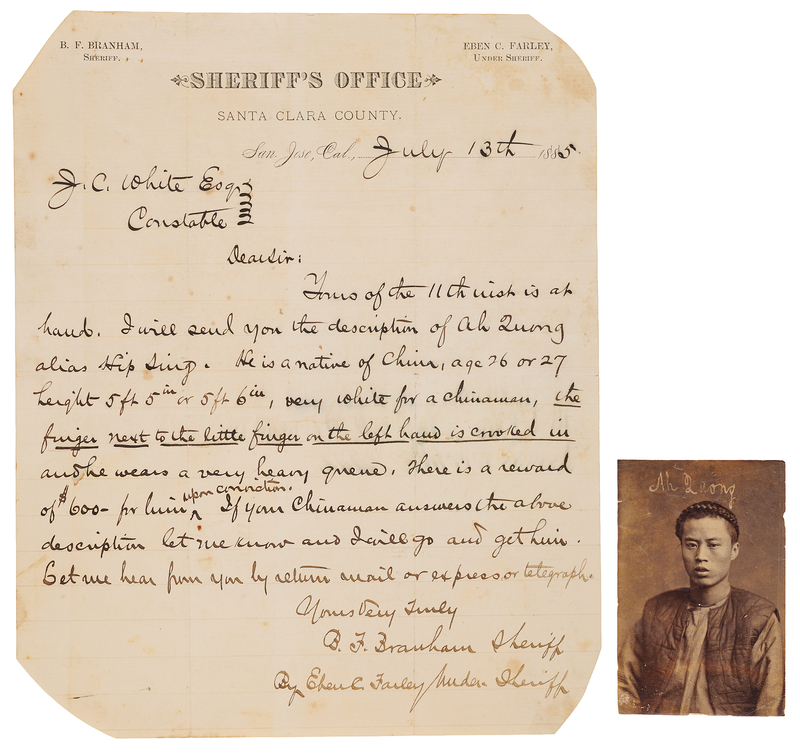 B. F. BRANHAM,
SHERIFF.
EBEN C. FARLEY,
UNDER SHERIFF.
SHERIFF'S OFFICE
SANTA CLARA COUNTY.
San Jose, Cal., July 13th 1885.
J. C. White Esqr
Constable
Dear Sir:
Yours of the 11th inst is at
hand. I will send you the description of Ah Quong
alias Hip Sing. He is a native of China, age 26 or 27
height 5 ft 5 in or 5 ft 6 in, very white for a chinaman, the
finger next to the little finger on the left hand is crooked in
and he wears a very heavy queue. There is a reward
of $600- for him upon conviction. If your Chinaman answers the above
description let me know and I will go and get him.
Let me hear from you by return mail or express or telegraph.
Yours Very Truly
B. F. Branham Sheriff
By Eben C. Farley Under Sheriff
Ah Quong